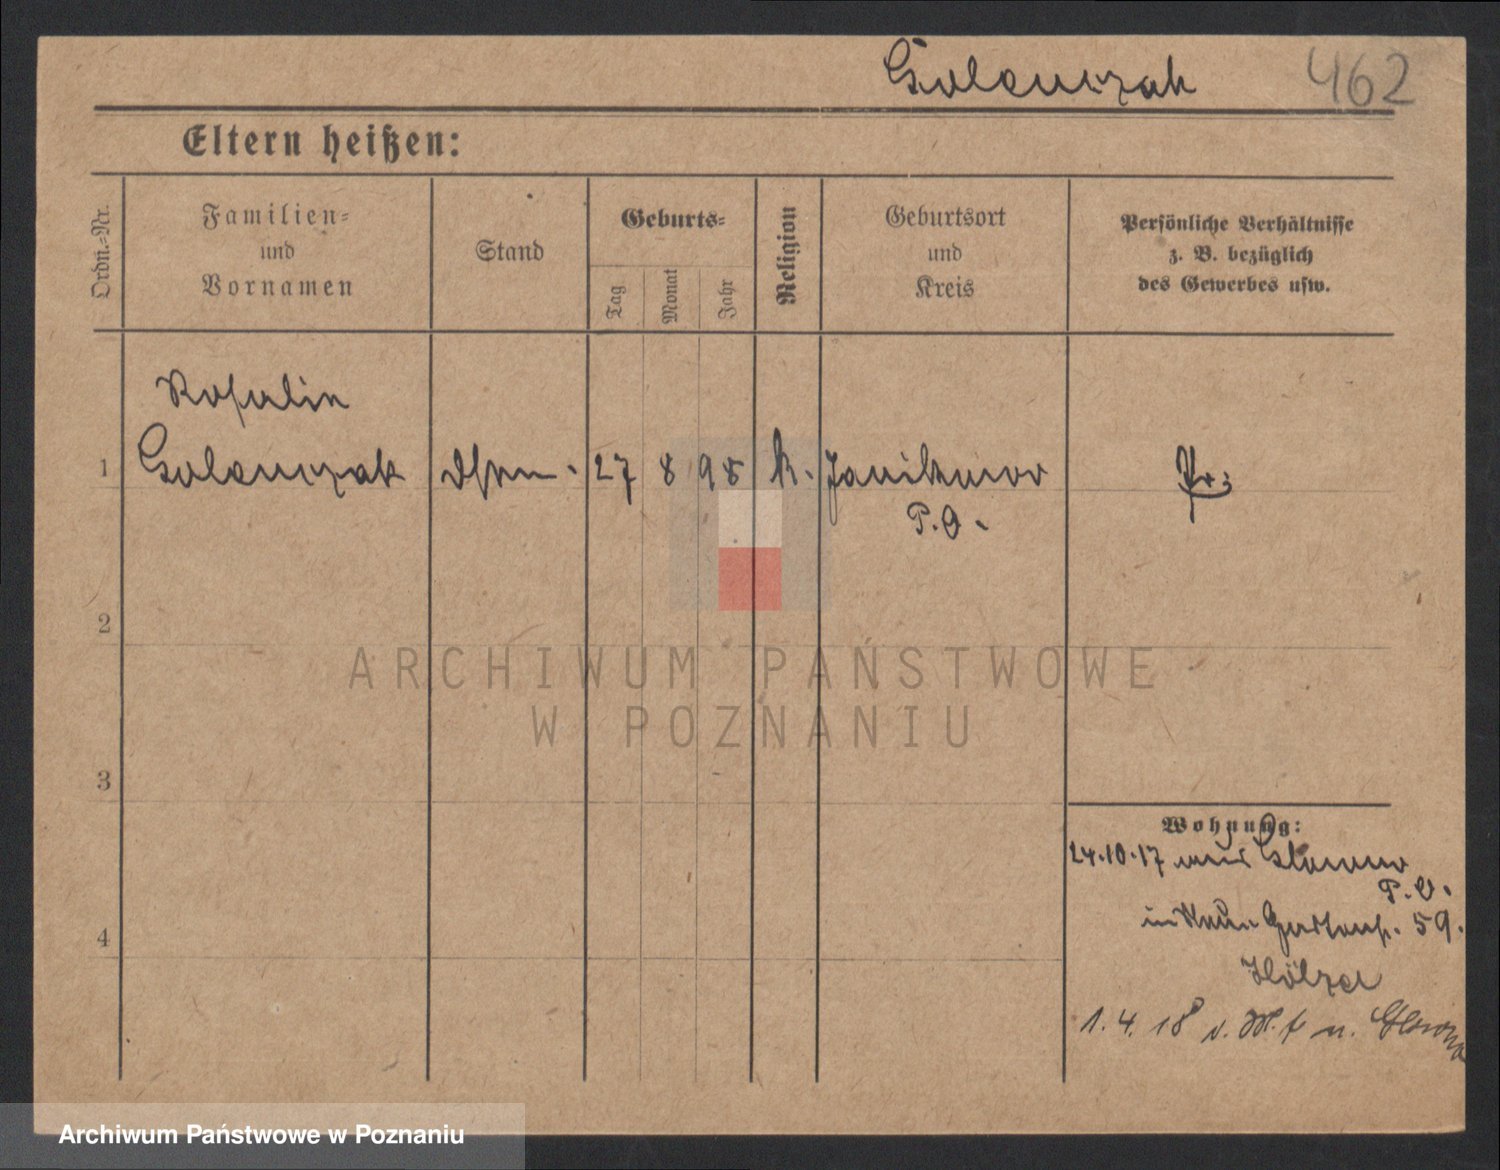 Golemczak 462
Eltern heißen:
Ordn.=Nr.
Familien=
und
Vornamen
Stand
Geburts=
Tag
Monat
Jahr
Religion
Geburtsort
und
Kreis
Persönliche Verhältnisse
z. B. bezüglich
des Gewerbes usw.
Rosalie
1 Golemczak 27 8 98 k. Janikowo Pr.
P.O.
2
ARCHIWUM PAŃSTWOWE
W POZNANIU
3
Wohnung:
24.10.17 aus
P.O.
in Gartenstr. 59.
Hölzel
1. 4. 18 v. n.
4
Archiwum Państwowe w Poznaniu